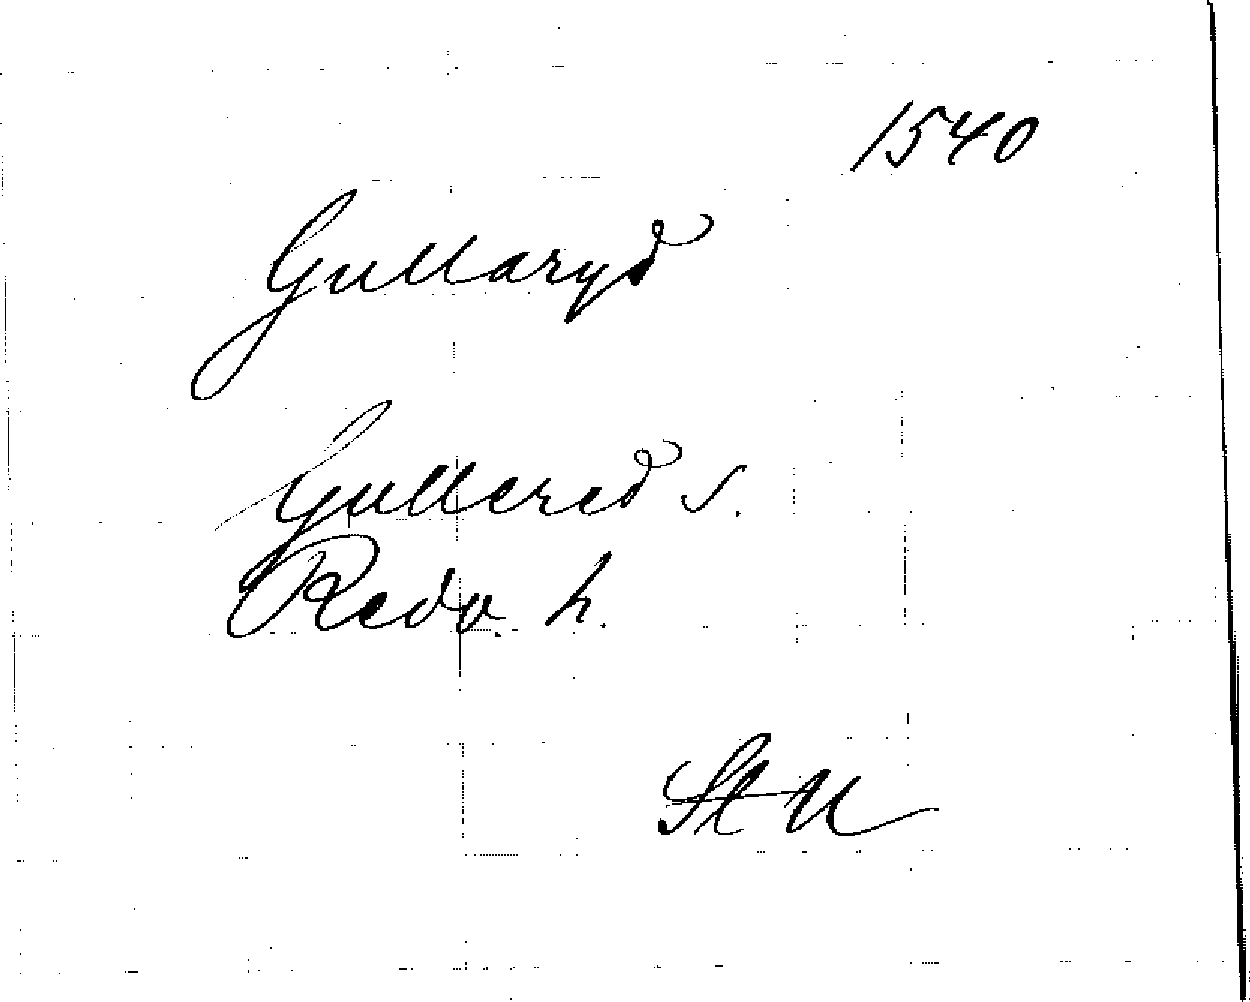 1540
Gullaryd
Gullered s.
Redv. h.
St U